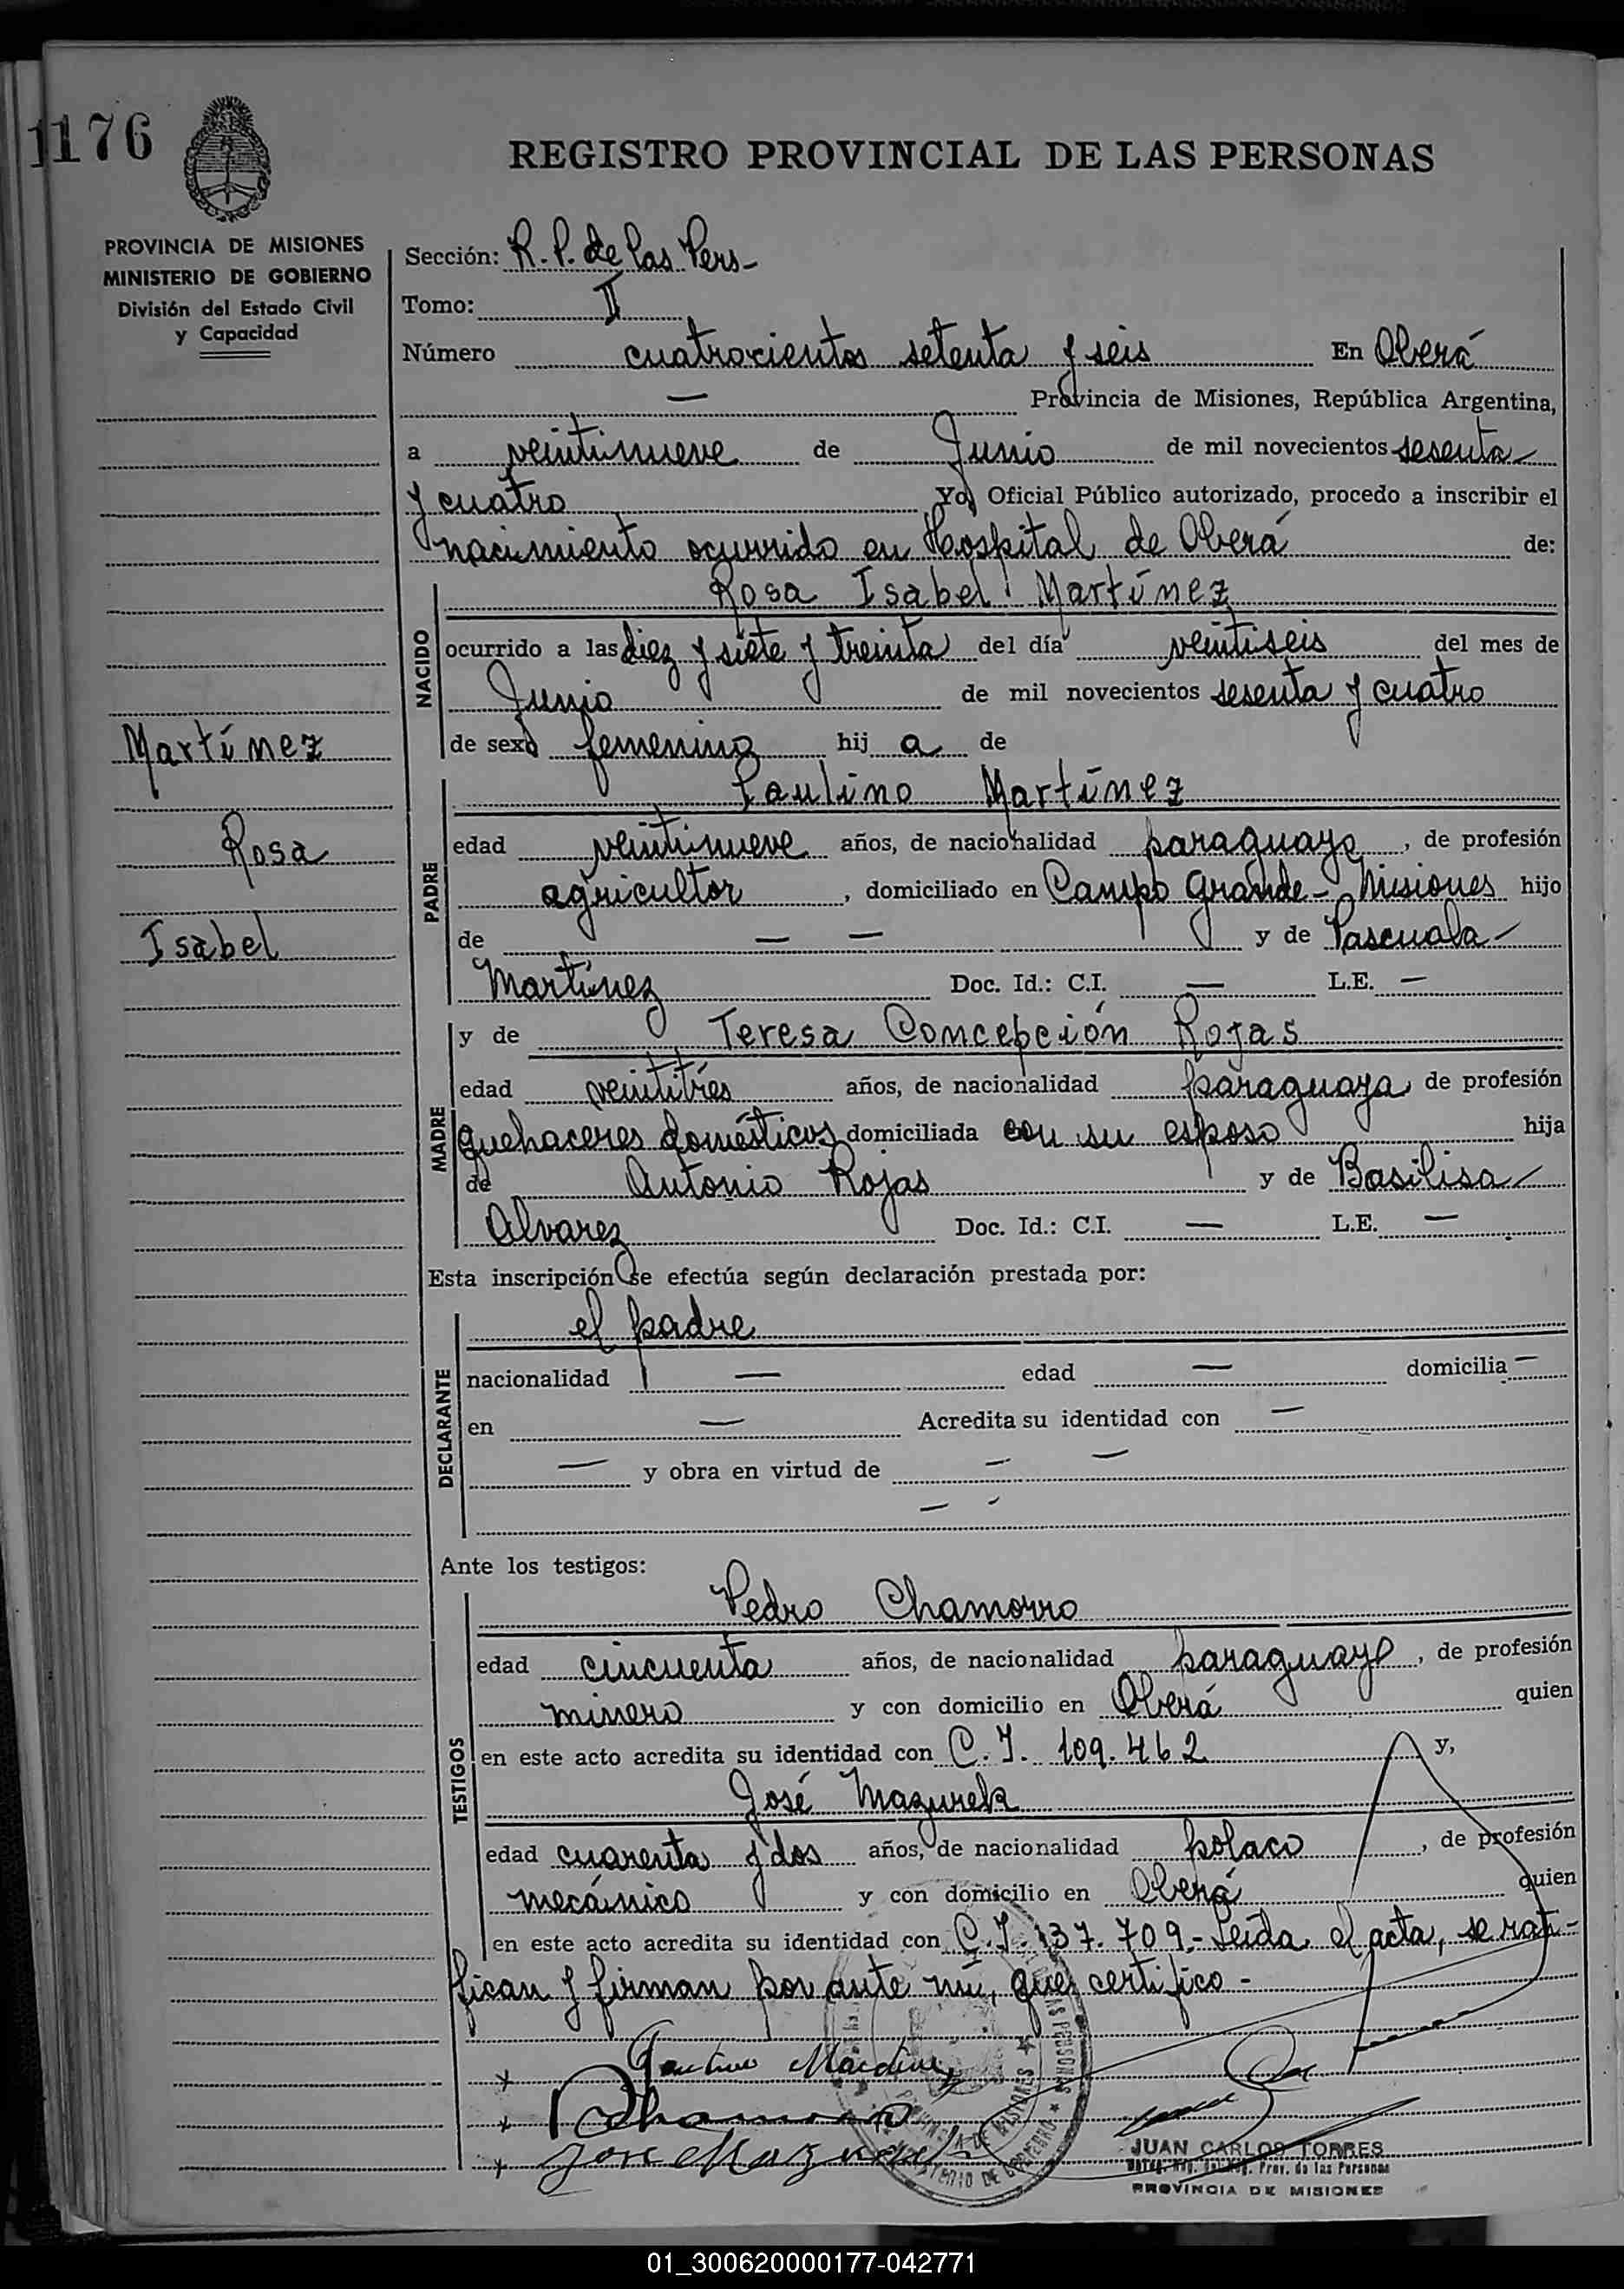 1176
REGISTRO PROVINCIAL DE LAS PERSONAS
PROVINCIA DE MISIONES
MINISTERIO DE GOBIERNO
División del Estado Civil
y Capacidad
Martínez
Rosa
Isabel
Sección: R. P. de las Pers-
Tomo: II
Número cuatrocientos setenta y seis En Oberá
— Provincia de Misiones, República Argentina,
a veintinueve de Junio de mil novecientos sesenta
y cuatro Yo, Oficial Público autorizado, procedo a inscribir el
nacimiento ocurrido en Hospital de Oberá de:
NACIDO
Rosa Isabel Martínez
ocurrido a las diez y siete y treinta del día veintiseis del mes de
Junio de mil novecientos sesenta y cuatro
de sexo femenino hij a de
PADRE
Paulino Martínez
edad veintinueve años, de nacionalidad paraguayo, de profesión
agricultor, domiciliado en Campo Grande - Misiones hijo
de — — y de Pascuala
Martínez Doc. Id.: C.I. — L.E. —
MADRE
y de Teresa Concepción Rojas
edad veintitrés años, de nacionalidad paraguaya de profesión
quehaceres domésticos domiciliada con su esposo hija
de Antonio Rojas y de Basilisa
Alvarez Doc. Id.: C.I. — L.E. —
Esta inscripción se efectúa según declaración prestada por:
DECLARANTE
el padre
nacionalidad — edad — domicilia —
en — Acredita su identidad con —
— y obra en virtud de — —
— -
Ante los testigos:
TESTIGOS
Pedro Chamorro
edad cincuenta años, de nacionalidad paraguayo, de profesión
minero y con domicilio en Oberá quien
en este acto acredita su identidad con C. I. 109.462 y,
José Mazurek
edad cuarenta y dos años, de nacionalidad polaco, de profesión
mecánico y con domicilio en Oberá quien
en este acto acredita su identidad con C. I. 137.709.- Leída el acta, se rati-
fican y firman por ante mí, que certifico -
JUAN CARLOS TORRES
Prov. de las Personas
PROVINCIA DE MISIONES
01_300620000177-042771